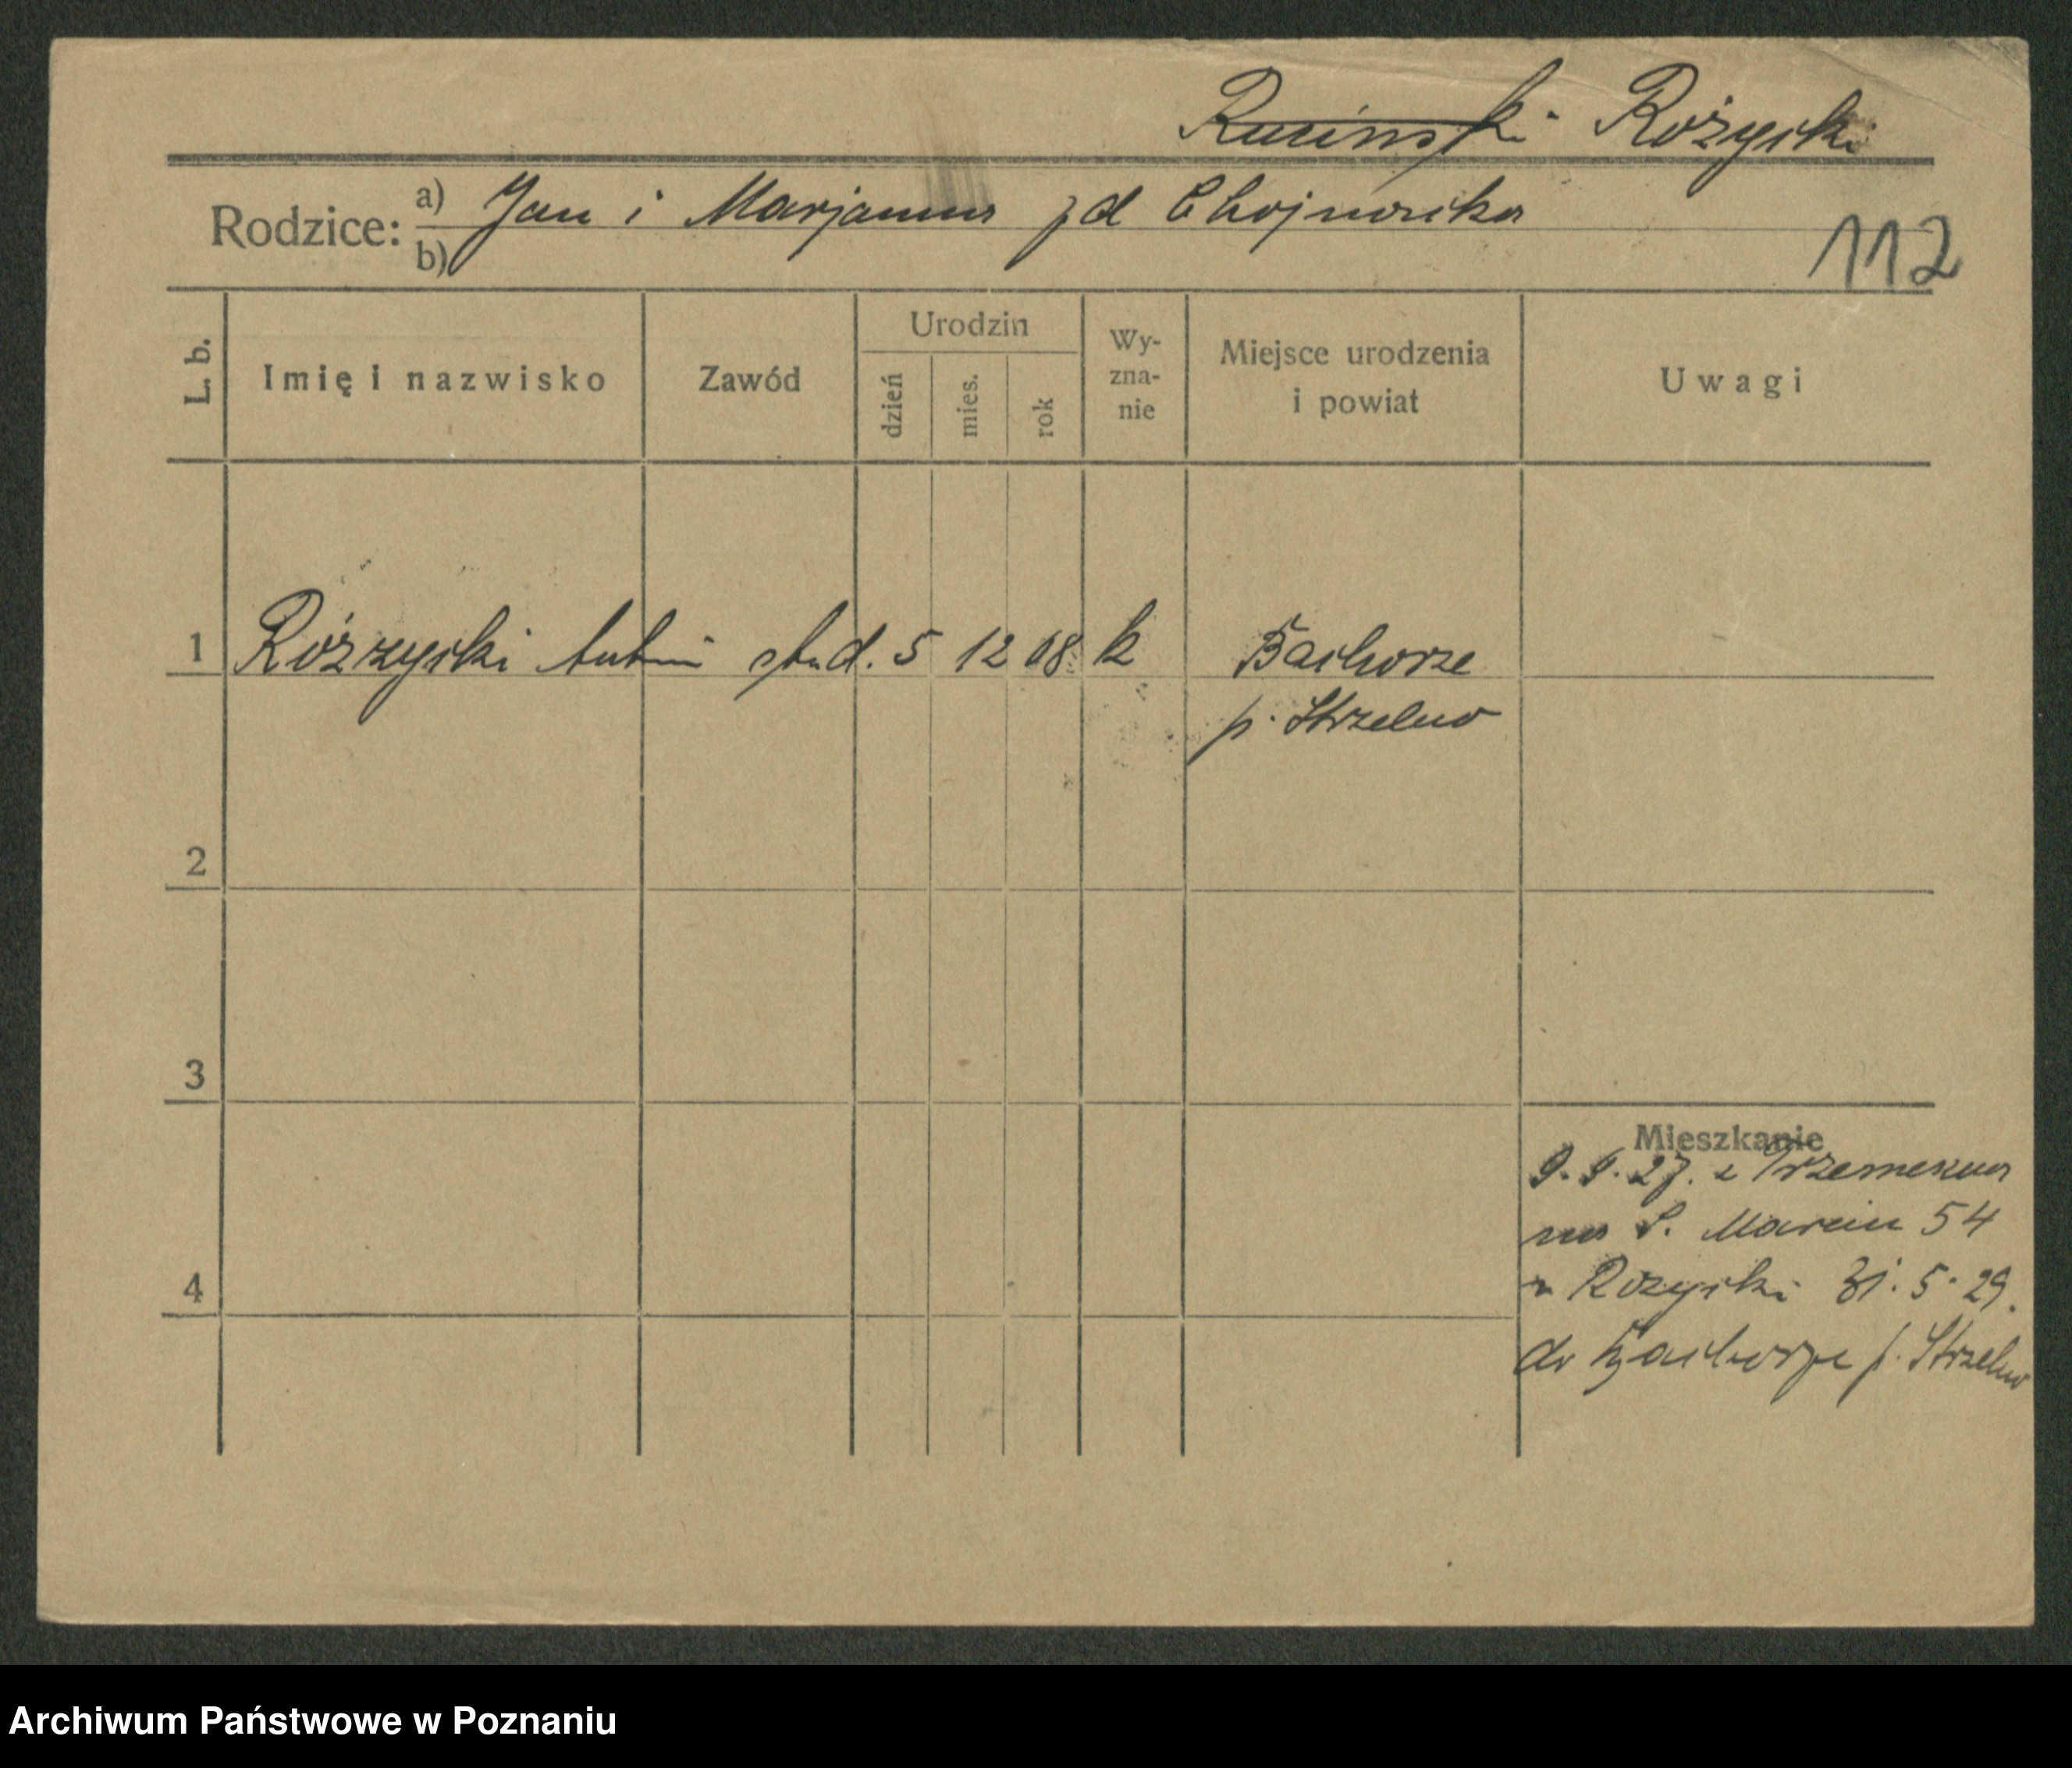 Ruciński Różycki
Rodzice: a) Jan i Marjanna zd Chojnacka
b)
112
L. b.
Imię i nazwisko
Zawód
Urodzin
dzień
mies.
rok
Wy-
zna-
nie
Miejsce urodzenia
i powiat
Uwagi
1 Różzycki Antoni stud. 5 12 08 k Bachorze
p. Strzelno
2
3
4
Mieszkanie
9. 9. 27. z Trzemeszna
na S. Marcin 54
Rozycki 31. 5. 29.
do Bachorze p. Strzelno
Archiwum Państwowe w Poznaniu